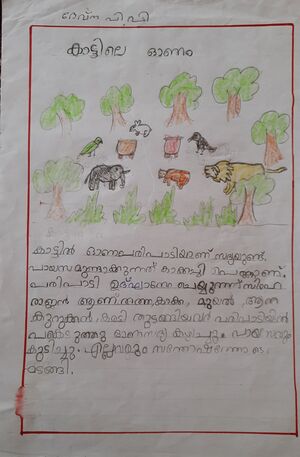 ദേവ്ന പി.പി
കാട്ടിലെ ഓണം
കാട്ടിൽ ഓണപരിപാടിയാണ് സദ്യയുണ്ട്.
പായസമുണ്ടാക്കുന്നത് കാക്കച്ചി പെണ്ണാണ്.
പരിപാടി ഉദ്ഘാടനം ചെയ്യുന്നത് സിംഹ
രാജൻ ആണ് തത്ത, കാക്ക, മുയൽ, ആന
കുറുക്കൻ, തുടങ്ങിയവർ പരിപാടിയിൽ
പങ്കെടുത്തു ഓണസദ്യ കഴിച്ചു. പായസവും
കുടിച്ചു. എല്ലാവരും സന്തോഷത്തോടെ
മടങ്ങി.